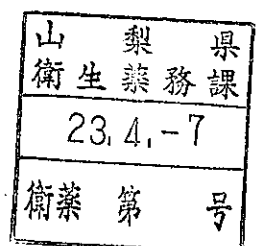 山梨県
衛生薬務課
23.4.-7
衛薬第　号